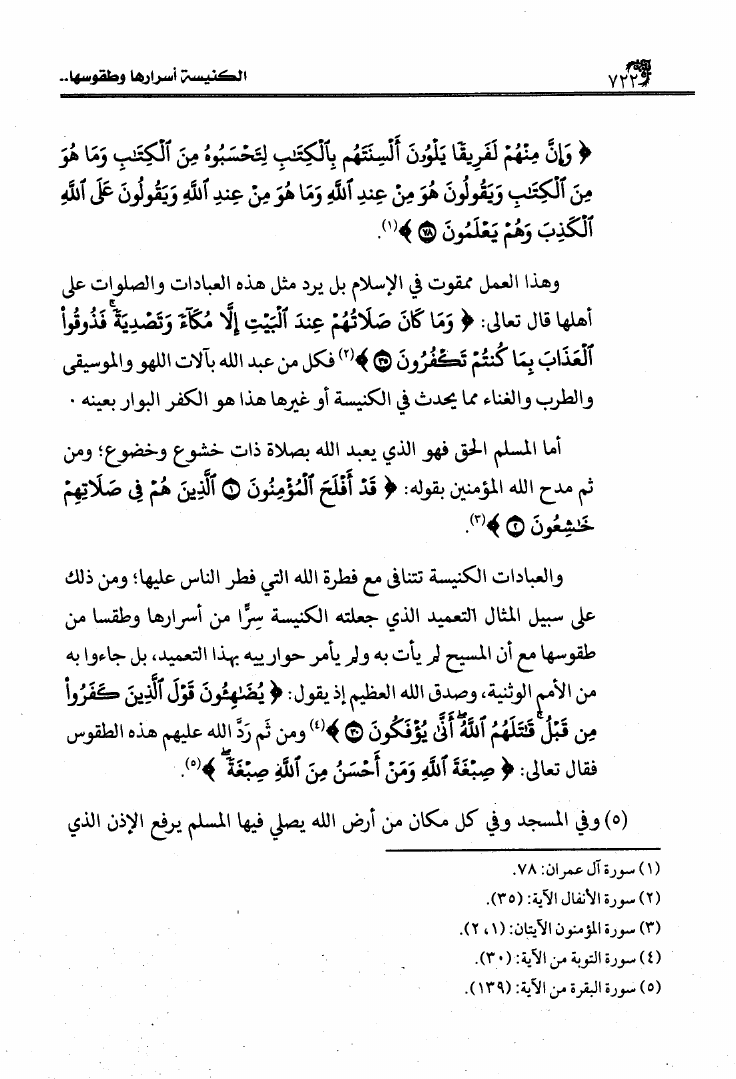 الكنيسة أسرارها وطقوسها..
٧٢٢
﴿ وَإِنَّ مِنْهُمْ لَفَرِيقًا يَلْوُۥنَ أَلْسِنَتَهُم بِٱلْكِتَٰبِ لِتَحْسَبُوهُ مِنَ ٱلْكِتَٰبِ وَمَا هُوَ
مِنَ ٱلْكِتَٰبِ وَيَقُولُونَ هُوَ مِنْ عِندِ ٱللَّهِ وَمَا هُوَ مِنْ عِندِ ٱللَّهِ وَيَقُولُونَ عَلَى ٱللَّهِ
ٱلْكَذِبَ وَهُمْ يَعْلَمُونَ ٧٨ ﴾(١).
وهذا العمل ممقوت في الإسلام بل يرد مثل هذه العبادات والصلوات على
أهلها قال تعالى: ﴿ وَمَا كَانَ صَلَاتُهُمْ عِندَ ٱلْبَيْتِ إِلَّا مُكَآءً وَتَصْدِيَةً ۚ فَذُوقُوا۟
ٱلْعَذَابَ بِمَا كُنتُمْ تَكْفُرُونَ ٣٥ ﴾(٢) فكل من عبد الله بآلات اللهو والموسيقى
والطرب والغناء مما يحدث في الكنيسة أو غيرها هذا هو الكفر البوار بعينه ٠
أما المسلم الحق فهو الذي يعبد الله بصلاة ذات خشوع وخضوع؛ ومن
ثم مدح الله المؤمنين بقوله: ﴿ قَدْ أَفْلَحَ ٱلْمُؤْمِنُونَ ١ ٱلَّذِينَ هُمْ فِى صَلَاتِهِمْ
خَٰشِعُونَ ٢ ﴾(٣).
والعبادات الكنيسة تتنافى مع فطرة الله التي فطر الناس عليها؛ ومن ذلك
على سبيل المثال التعميد الذي جعلته الكنيسة سِرًّا من أسرارها وطقسا من
طقوسها مع أن المسيح لم يأت به ولم يأمر حوارييه بهذا التعميد، بل جاءوا به
من الأمم الوثنية، وصدق الله العظيم إذ يقول: ﴿ يُضَٰهِـُٔونَ قَوْلَ ٱلَّذِينَ كَفَرُوا۟
مِن قَبْلُ ۚ قَٰتَلَهُمُ ٱللَّهُ ۖ أَنَّىٰ يُؤْفَكُونَ ٣٠ ﴾(٤) ومن ثم رَدَّ الله عليهم هذه الطقوس
فقال تعالى: ﴿ صِبْغَةَ ٱللَّهِ وَمَنْ أَحْسَنُ مِنَ ٱللَّهِ صِبْغَةً ۖ ﴾(٥).
(٥) وفي المسجد وفي كل مكان من أرض الله يصلي فيها المسلم يرفع الإذن الذي
(١) سورة آل عمران: ٧٨.
(٢) سورة الأنفال الآية: (٣٥).
(٣) سورة المؤمنون الآيتان: (١، ٢).
(٤) سورة التوبة من الآية: (٣٠).
(٥) سورة البقرة من الآية: (١٣٩).